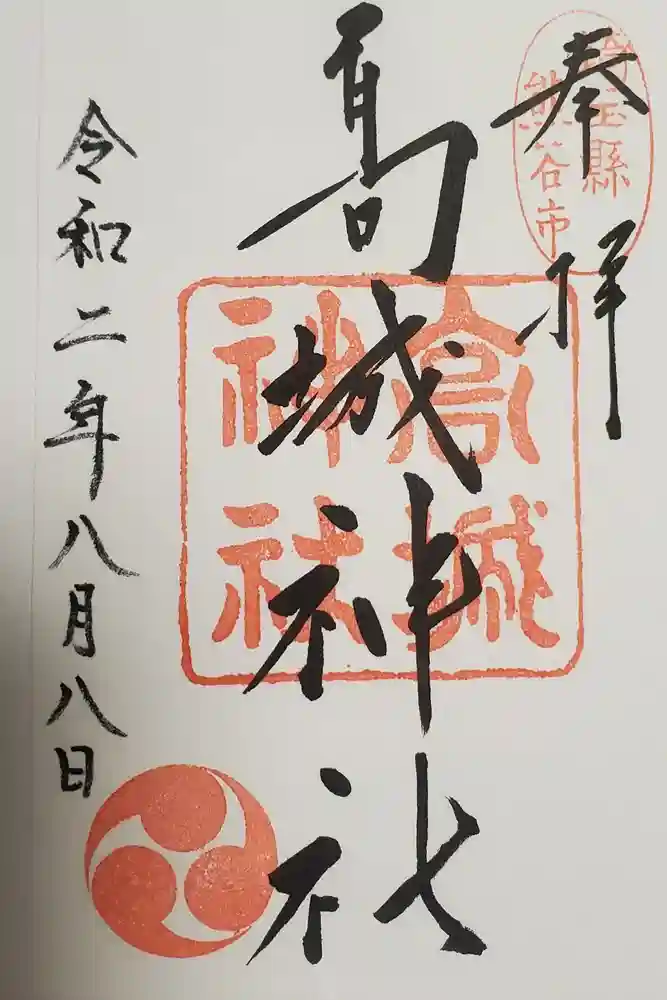 奉拝
埼玉縣
熊谷市
高城神社
高城
神社
令和二年八月八日